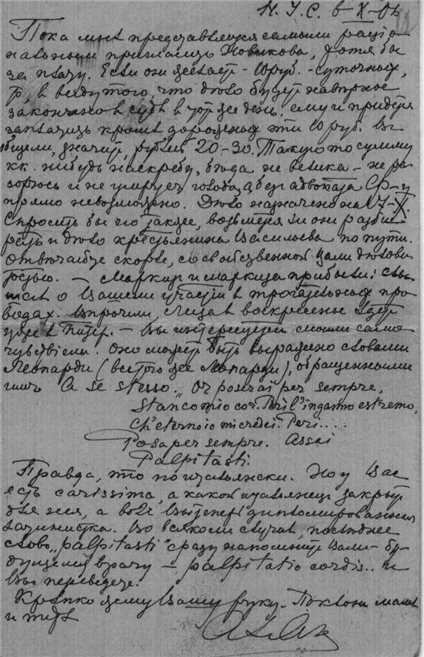 Н.У.С. 6-X-04
Пока мне представляется самым рацио-
нальным пригласить Новикова, хотя бы
за плату. Если он желает - 10 руб. - суточных,
в виду того, что дело будет наверное
закончено в суде в тот же день, ему и придется
заплатить кроме дорожных эти 10 руб. В
общем, значит, рублей 20-30. Такую то сумму
как нибудь наскребу, беда не велика - не ра-
зорюсь и не умру с голода, а без адвоката
прямо невозможно. Дело назначено на 17-XI
Спросить бы его также, возьмется ли он разби-
рать и дело крестьянина Васильева по пути.
Отвечайте скорее, со свойственной Вам делови-
тостью. — Маркиз и маркиза прибыли: слы-
шал о Вашем участии в трогательных про-
водах. Впрочем, лица в воскресенье
уже в Питер. — Вы интересуетесь моим само-
чувствием. Оно может быть выражено словами
Леопарди (Леопарди), обращенными
им A se stesso: "Or poserai per sempre,
Stanco mio cor. Perì l'inganno estremo,
Ch'eterno io mi credei. Perì....
Posa per sempre. Assai
Palpitasti.
Правда, это по итальянски. Но у Вас
есть carissima, а какой итальянец закрыт
для нея, а во всяком случае, последнее
слово "palpitasti" сразу напомнит Вам - бу-
дущему врачу — palpitatio cordis.. и
Вы переведете.
Крепко жму Вашу руку. Поклоны маме
и тете